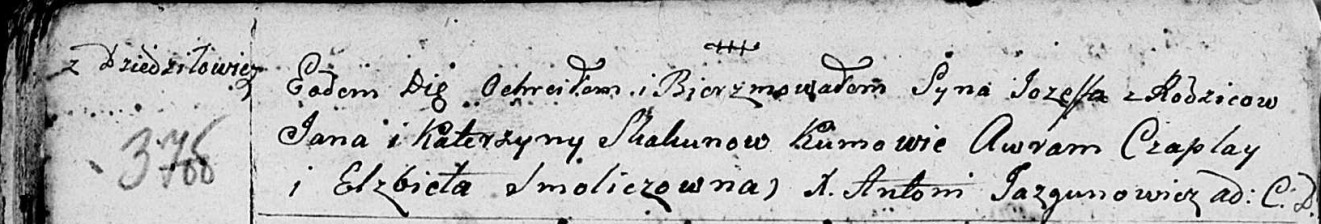 z Dziedziłowicz
376
Eodem Die Ochrciłem i Bierzmowałem Syna Jozeffa z Rodzicow
Jana i Katerzyny Skakunow Kumowie Awram Czaplay
i Elzbieta Smoliczowna, X. Antoni Jazgunowicz ad: C. D.